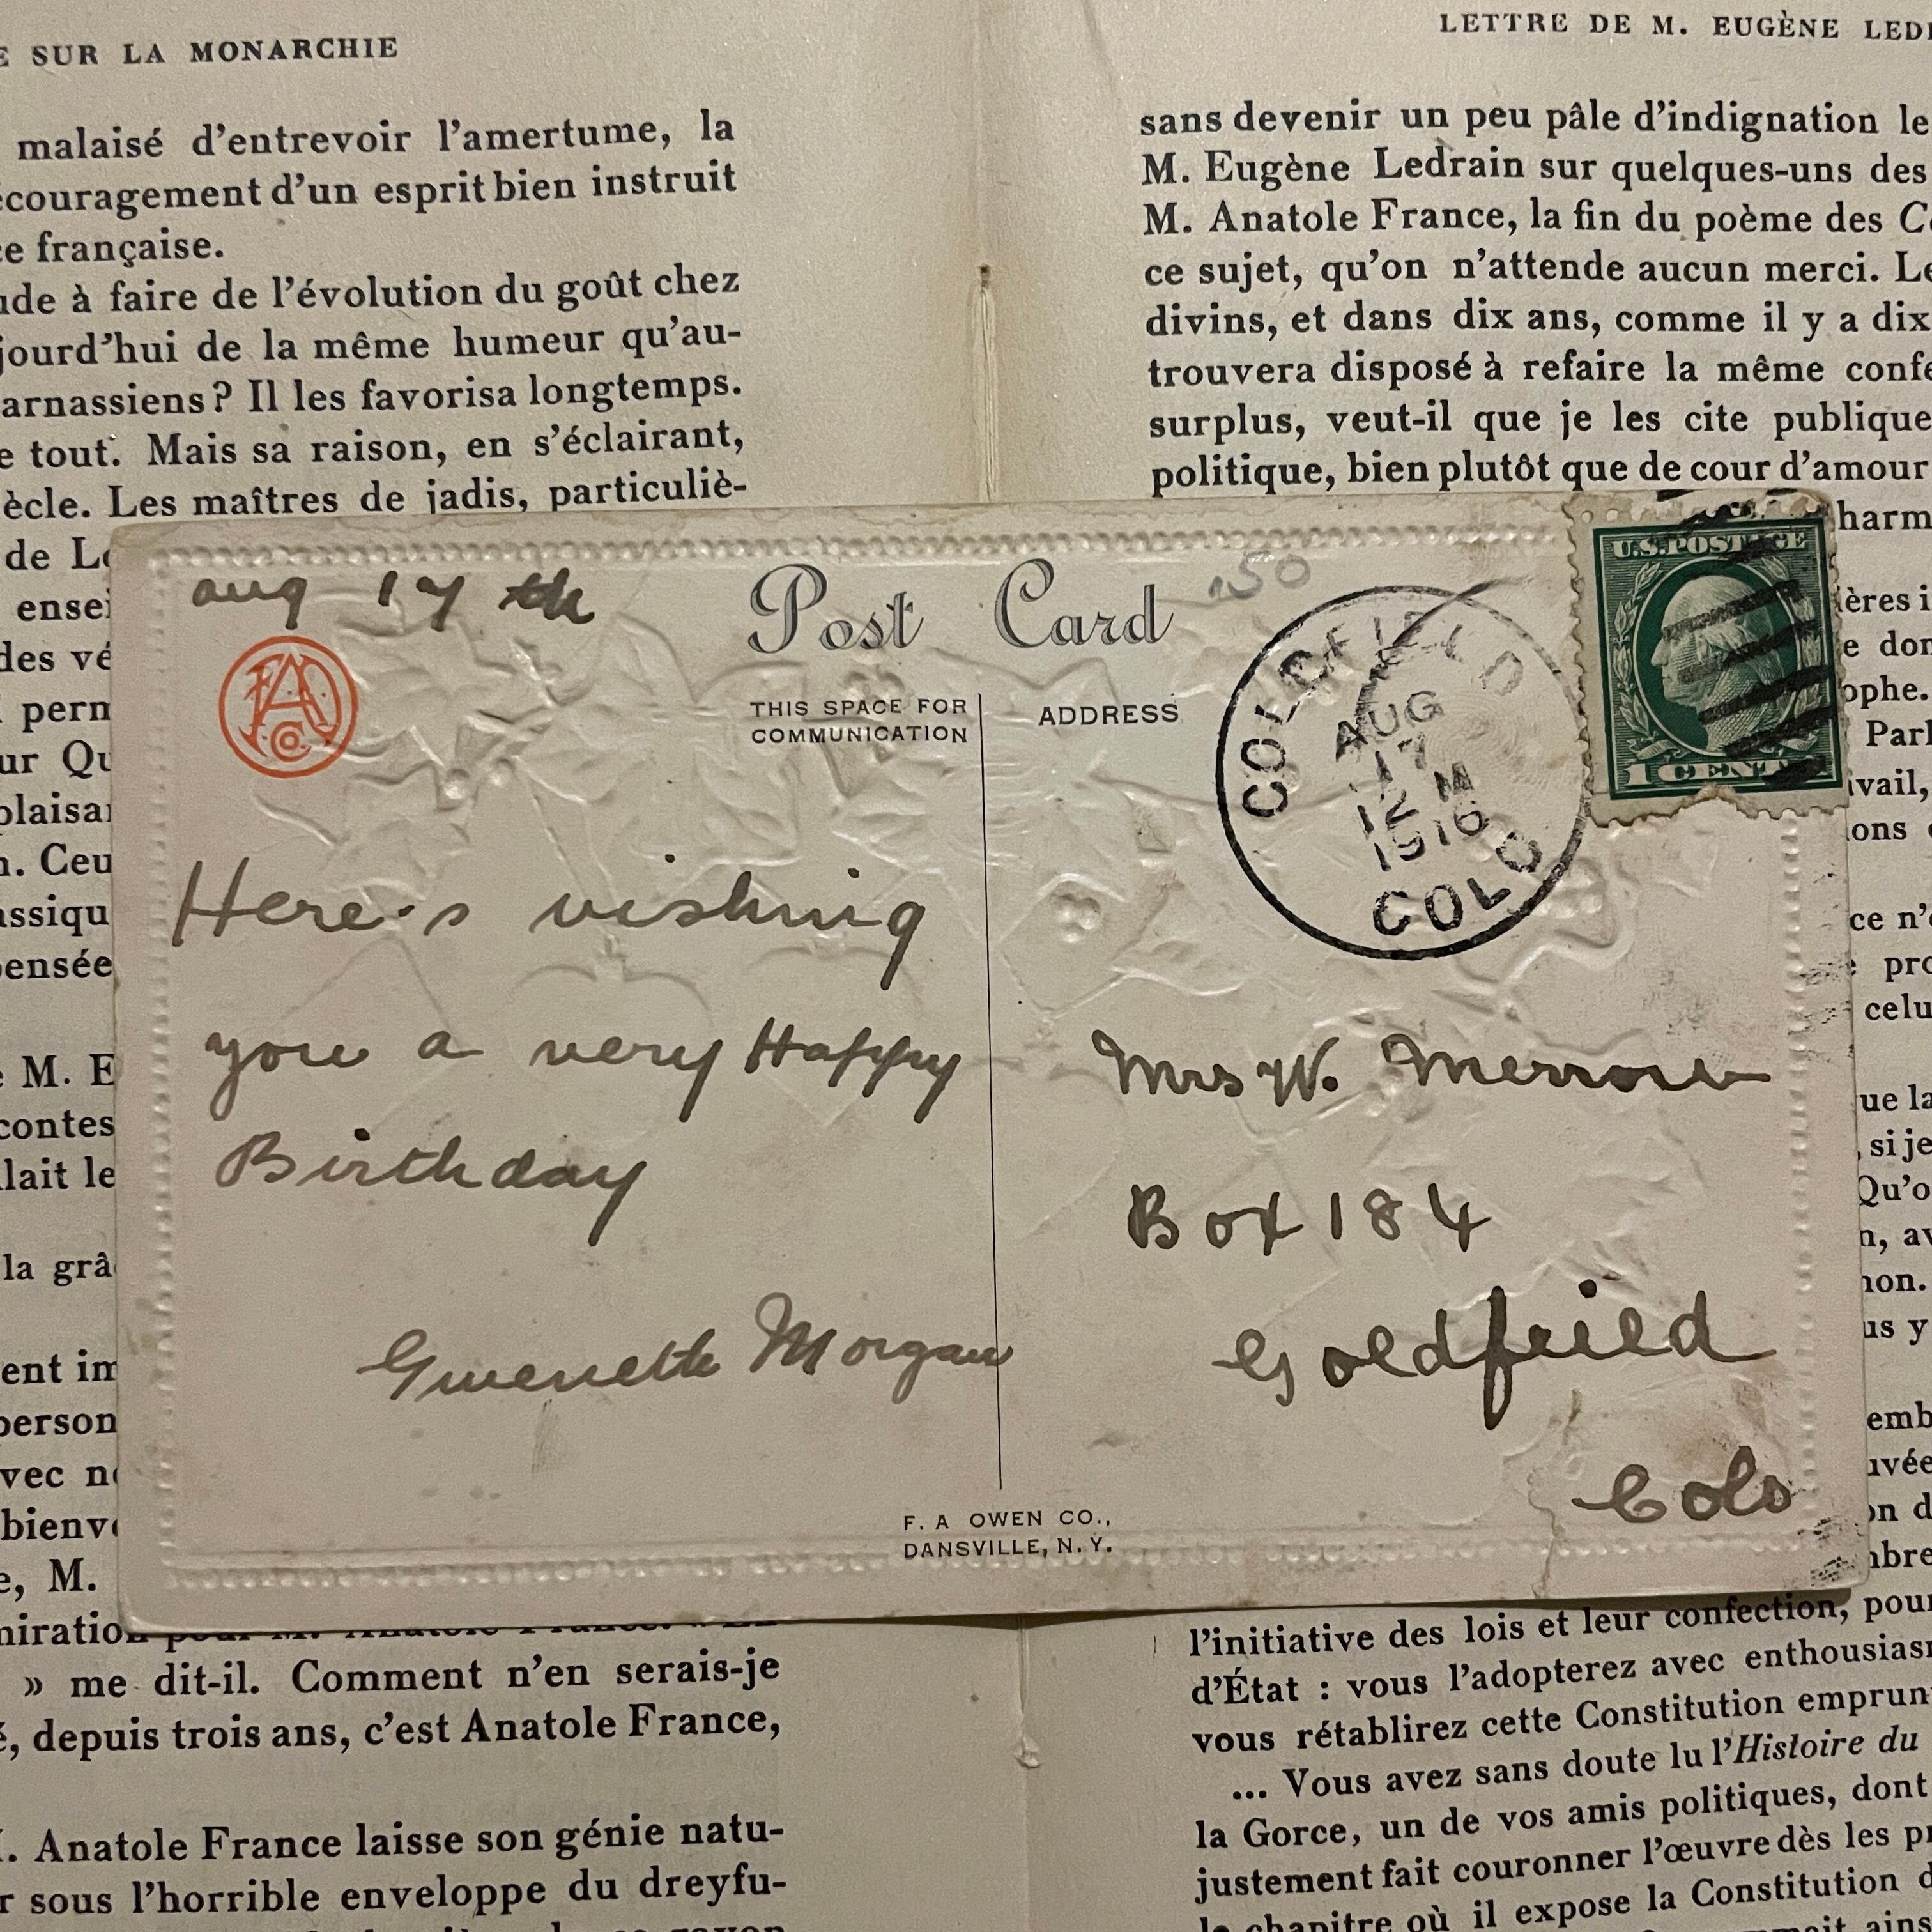 E SUR LA MONARCHIE
malaisé d'entrevoir l'amertume, la
écouragement d'un esprit bien instruit
ce française.
ude à faire de l'évolution du goût chez
jourd'hui de la même humeur qu'au-
arnassiens? Il les favorisa longtemps.
e tout. Mais sa raison, en s'éclairant,
ècle. Les maîtres de jadis, particuliè-
de Le
ensei
des vé
perm
ur Qu
plaisan
n. Ceu
assiqu
pensée
M. E
contes
lait le
la grâ
ent im
person
vec ne
bienve
e, M.
miration pour M. Anatole France. « En
» me dit-il. Comment n'en serais-je
é, depuis trois ans, c'est Anatole France,
I. Anatole France laisse son génie natu-
r sous l'horrible enveloppe du dreyfu-
LETTRE DE M. EUGÈNE LEDR
sans devenir un peu pâle d'indignation le
M. Eugène Ledrain sur quelques-uns des
M. Anatole France, la fin du poème des
ce sujet, qu'on n'attende aucun merci. Le
divins, et dans dix ans, comme il y a dix
trouvera disposé à refaire la même confe
surplus, veut-il que je les cite publique
politique, bien plutôt que de cour d'amour
harm
ères i
e don
ophe.
Parl
avail,
ions
ce n'
pro
celu
ue la
, si je
Qu'o
n, av
non.
us y
emb
uvée
on d
mbre
l'initiative des lois et leur confection, pour
d'État : vous l'adopterez avec enthousiasm
vous rétablirez cette Constitution emprun
... Vous avez sans doute lu l'Histoire du
la Gorce, un de vos amis politiques, dont
justement fait couronner l'œuvre dès les pr
le chapitre où il expose la Constitution d
aug 17 th
Post Card
.50
FAO Co
THIS SPACE FOR
COMMUNICATION
ADDRESS
GOLDFIELD
AUG
17
12 M
1916
COLO
U.S. POSTAGE
1 CENT 1
Here's wishing
you a very Happy
Birthday
Gwenette Morgan
Mrs W. Merrow
Box 184
Goldfeild
Colo
F. A OWEN CO.,
DANSVILLE, N. Y.